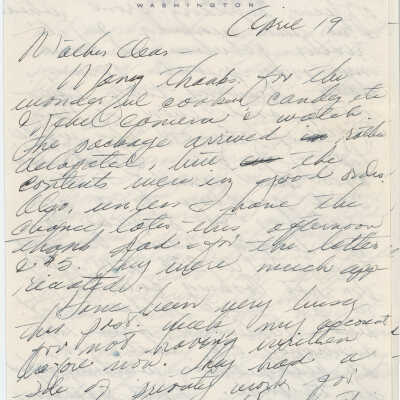 WASHINGTON
April 19
Mother Dear—
Many thanks for the
wonderful cookies, candy etc
& the camera & watch.
The package arrived in rather
delapated, but the
contents were in good order.
Also, unless I have the
chance later this afternoon
thank Dad for the letter
& $5. They were much app
reciated.
Have been very busy
this past week my account
for not having written
before now. They had a
of private work goi